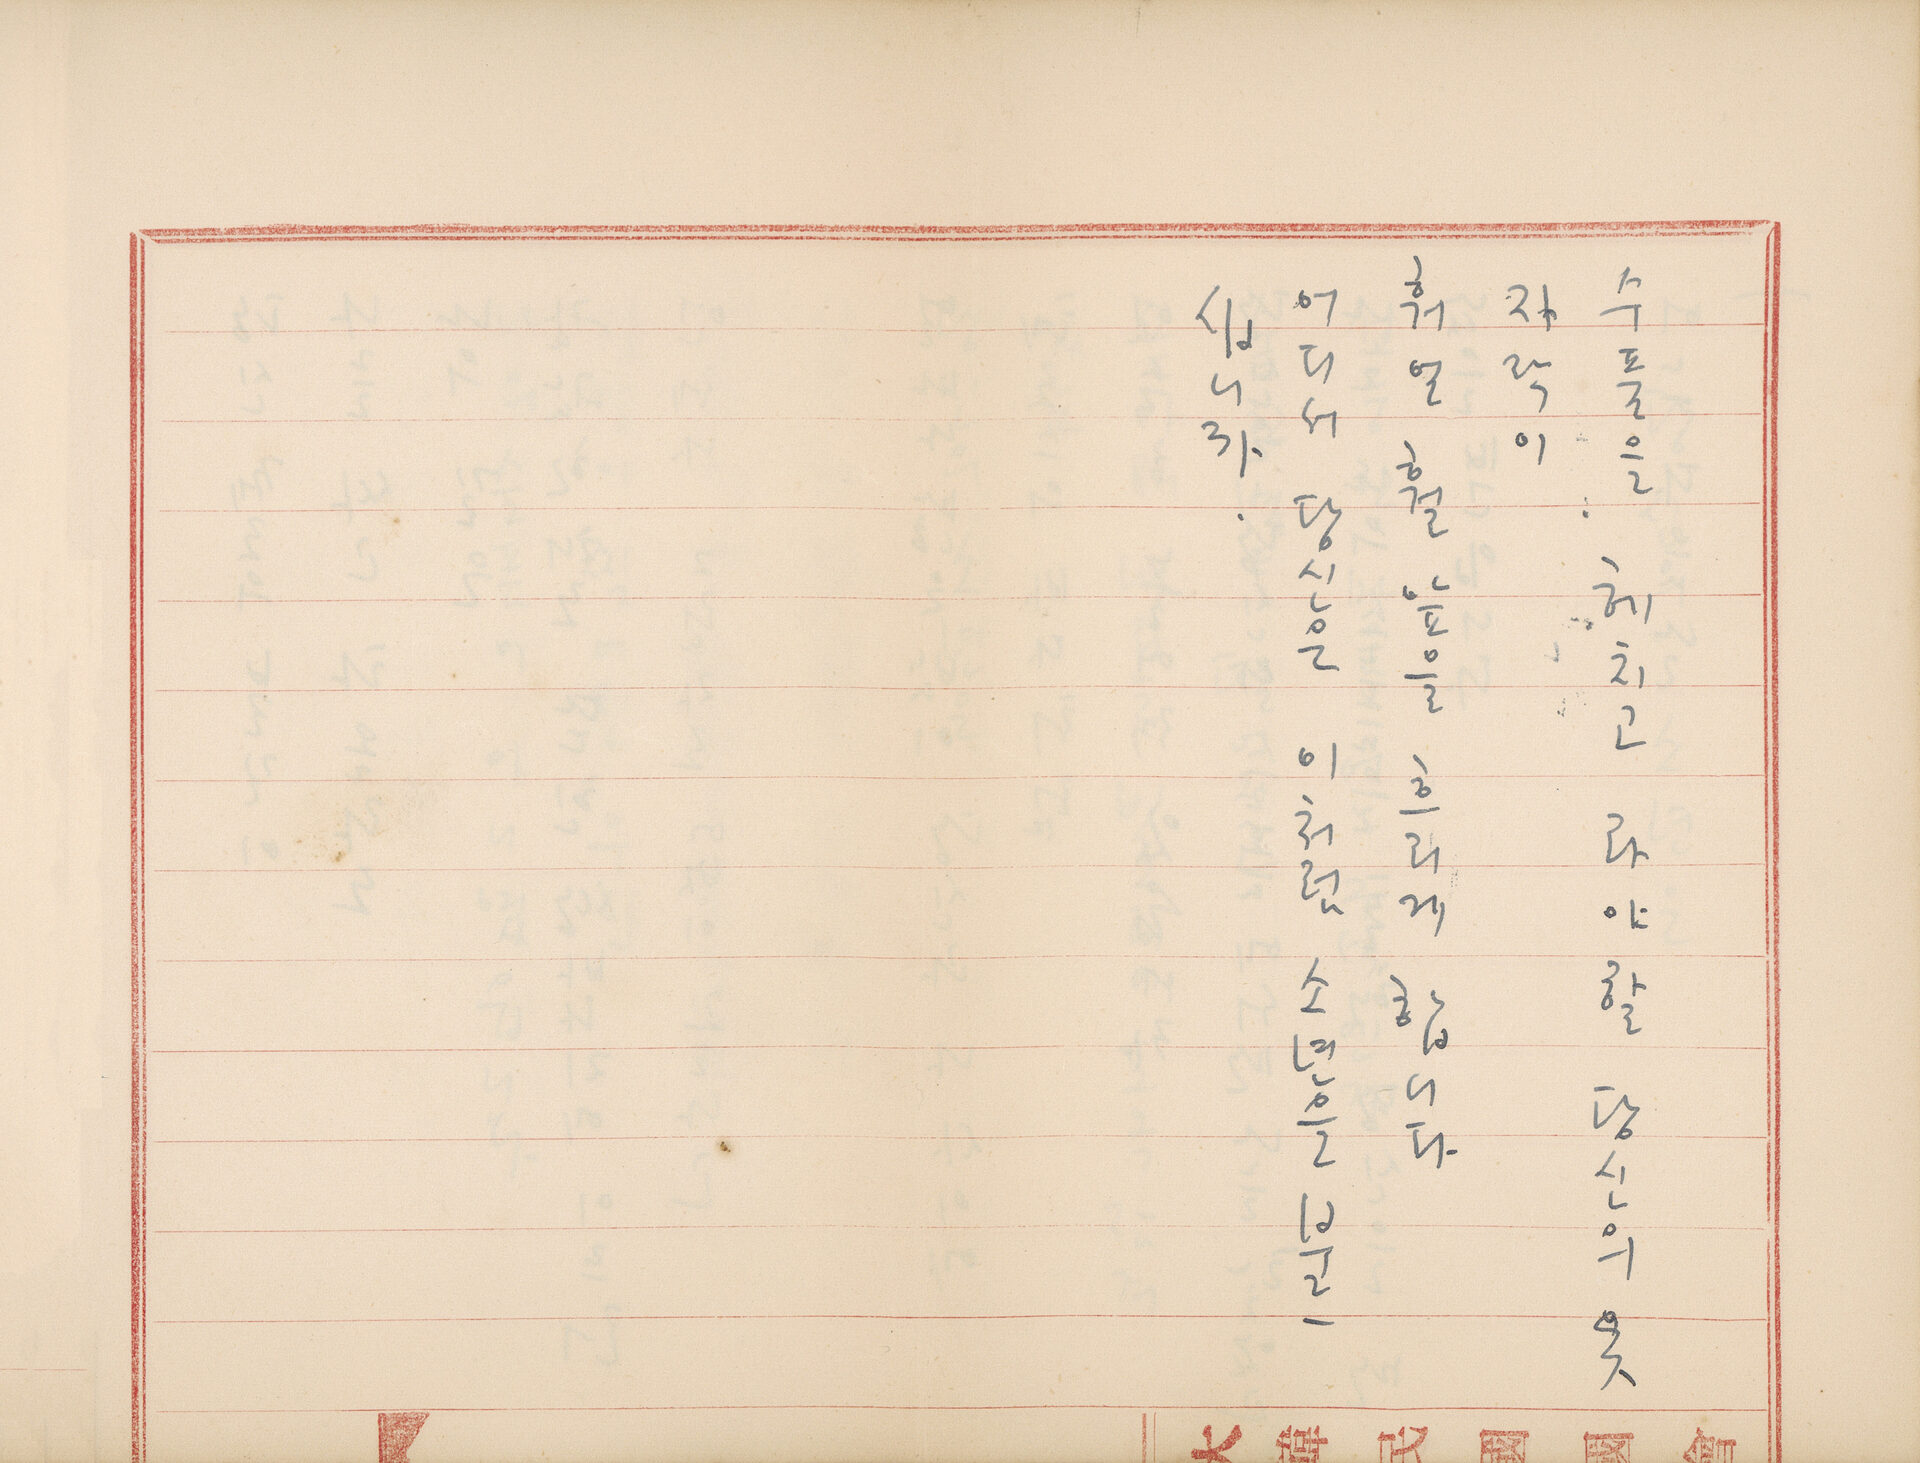 수풀을 헤치고 라야 할 당신의 옷
자락이
훠얼 훨 앞을 흐리게 합니다
어디서 당신은 이처럼 소년을 부르
십니까.
大韓民國國會